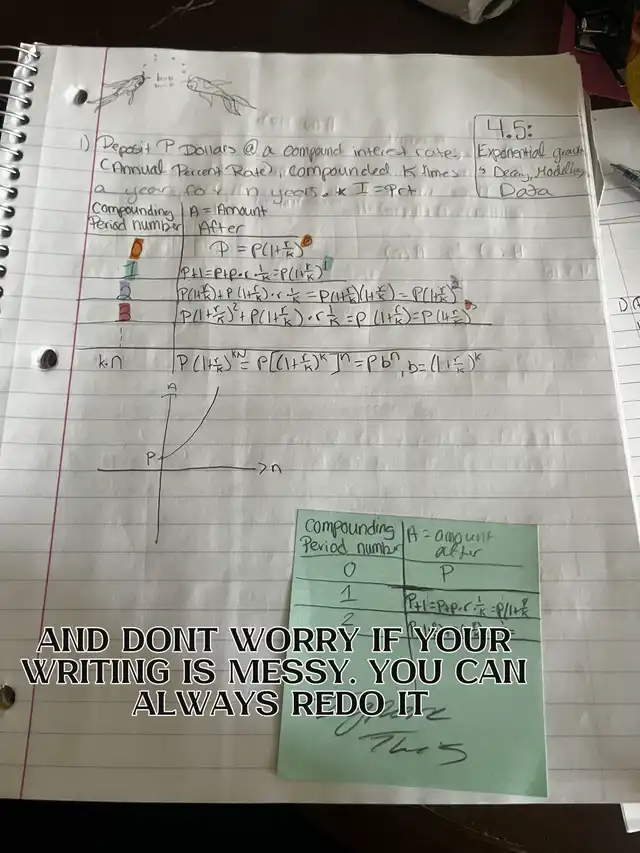 4.5:
Exponential growth
& Decay, Modeling
Data
1) Deposit P Dollars @ a compound interest rate,
(Annual Percent Rate), compounded K times
a year for n years. * I = Prt
Compounding
Period number
A = Amount
After
0 P = P(1+r/k)^0
1 P+1 = P+P·r·1/k = P(1+r/k)^1
2 P(1+r/k)+P(1+r/k)·r·1/k = P(1+r/k)(1+r/k) = P(1+r/k)^2
3 P(1+r/k)^2+P(1+r/k)·r 1/k = P(1+r/k) = P(1+r/k)
k·n P(1+r/k)^kN = P[(1+r/k)^k]^n = Pb^n, b = (1+r/k)^k
A
P
>n
Compounding
Period number
A = amount
after
0 P
1 P+1 = P+P·r·1/k = P(1+r/k
2
AND DONT WORRY IF YOUR
WRITING IS MESSY. YOU CAN
ALWAYS REDO IT
This